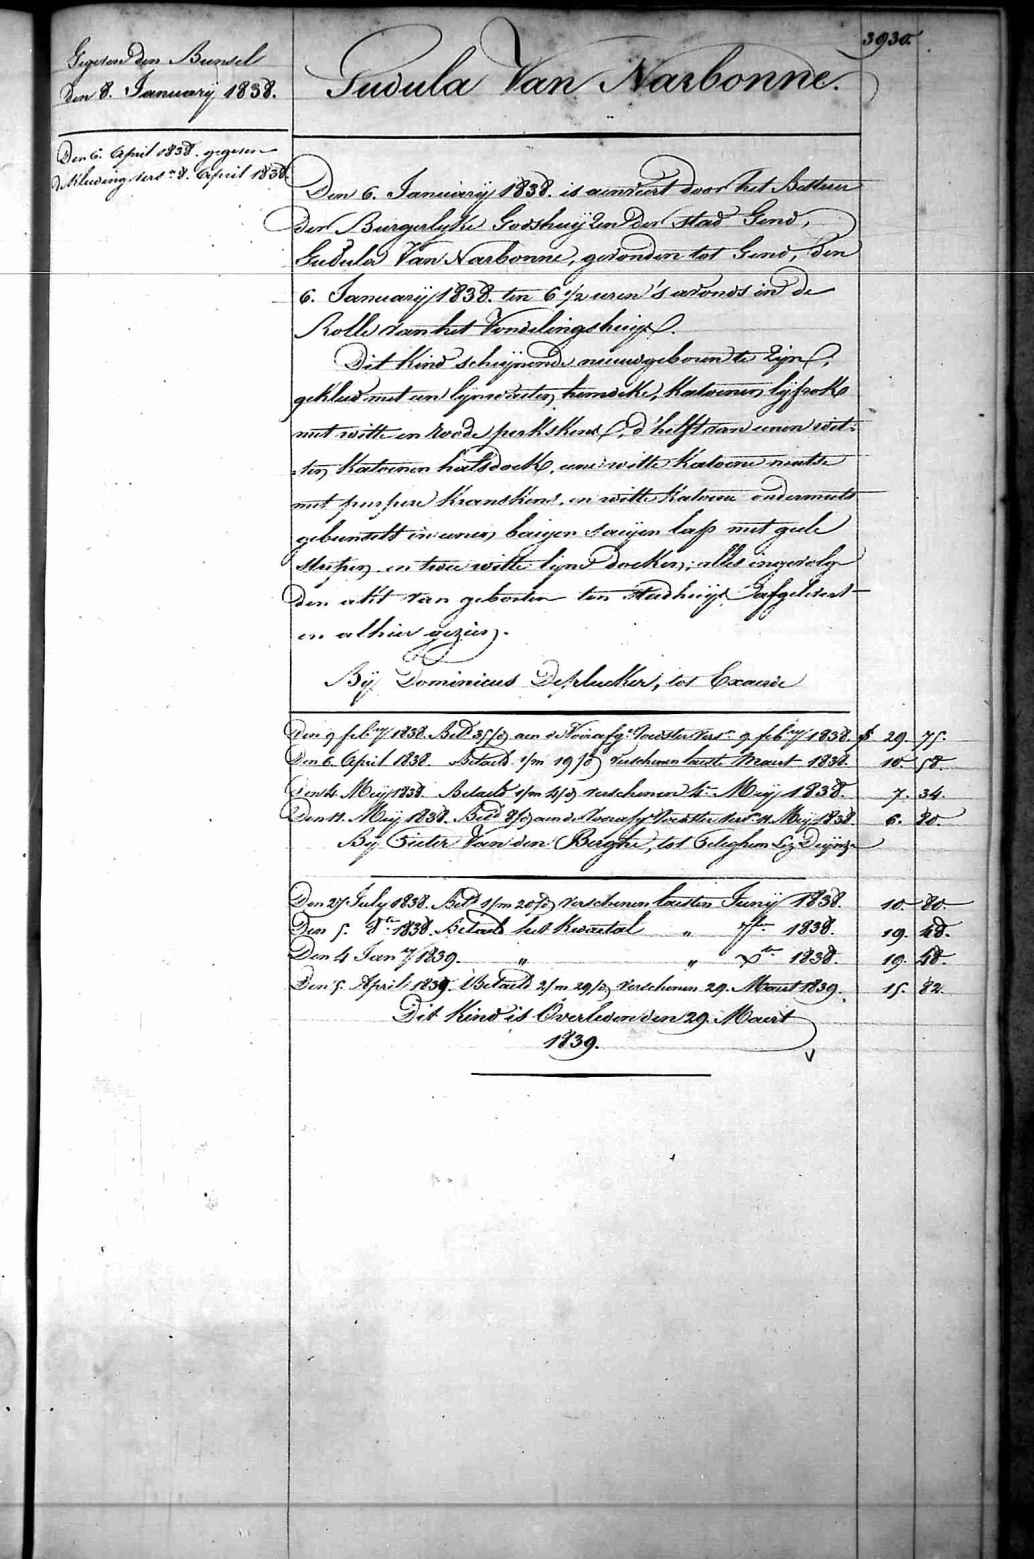 3930.
Gudula Van Narbonne.
Gegeven den Bunsel
den 8. Januarÿ 1838.
Den 6. April 1838. gegeven
d'kleeding vers.n 8. April 1838.
Den 6. Januarÿ 1838. is aenveert door het Bestuer
der Burgerlyke Godshuÿzen der stad Gend,
Gudula Van Narbonne, gevonden tot Gend, den
6. Januarÿ 1838. ten 6 1/2 uren 's avonds in de
Rolle van het Vondelingshuÿs.
Dit Kind schÿnende nieuwgeboren te zÿn,
gekleed met een lynwaeten hemdeke, katoenen lÿfrok
met witte en roode perkskens, d'helft van eenen wit-
ten katoenen halsdoek, eene witte katoene mutse
met purpere kranskens, en witte katoene ondermuts
gebunselt in eenen baeyen saeÿen lap met geele
strepen en twee witte lÿne doeken; alles ingevolge
den akt van geboorte ten stadhuÿse afgelevert
en alhier gezien.
Bÿ Dominicus Deplucker, tot Exaerde
Den 9 feb.ry 1838. Bet.d aen de Voorafg. Voedster vers.n 9 feb.ry 1838. f 29. 75.
Den 6. April 1838. Betaeld 1/m 19/d verschenen laetste Maert 1838. 10. 58.
Den 4 Meÿ 1838. Betaeld 1/m 4/d verschenen 4.n Meÿ 1838. 7. 34.
Den 11. Meÿ 1838. Bet.d 8/d aen de Voorafg. Voedster vers.n 11 Meÿ 1838 6. 80.
Bÿ Pieter Van den Berghe, tot Peteghem Lez Deÿnze
Den 27 July 1838. Bet.d 1/m 20/d verschenen laetsten Junÿ 1838. 10. 80.
Den 5. 8.bre 1838. Betaeld het Kwartael " 7.bre 1838. 19. 48.
Den 4 Jan.ry 1839. " " X.bre 1838. 19. 48.
Den 5. April 1839. Betaeld 2/m 29/d verschenen 29. Maert 1839. 15. 82.
Dit Kind is Overleden den 29 Maert
1839.